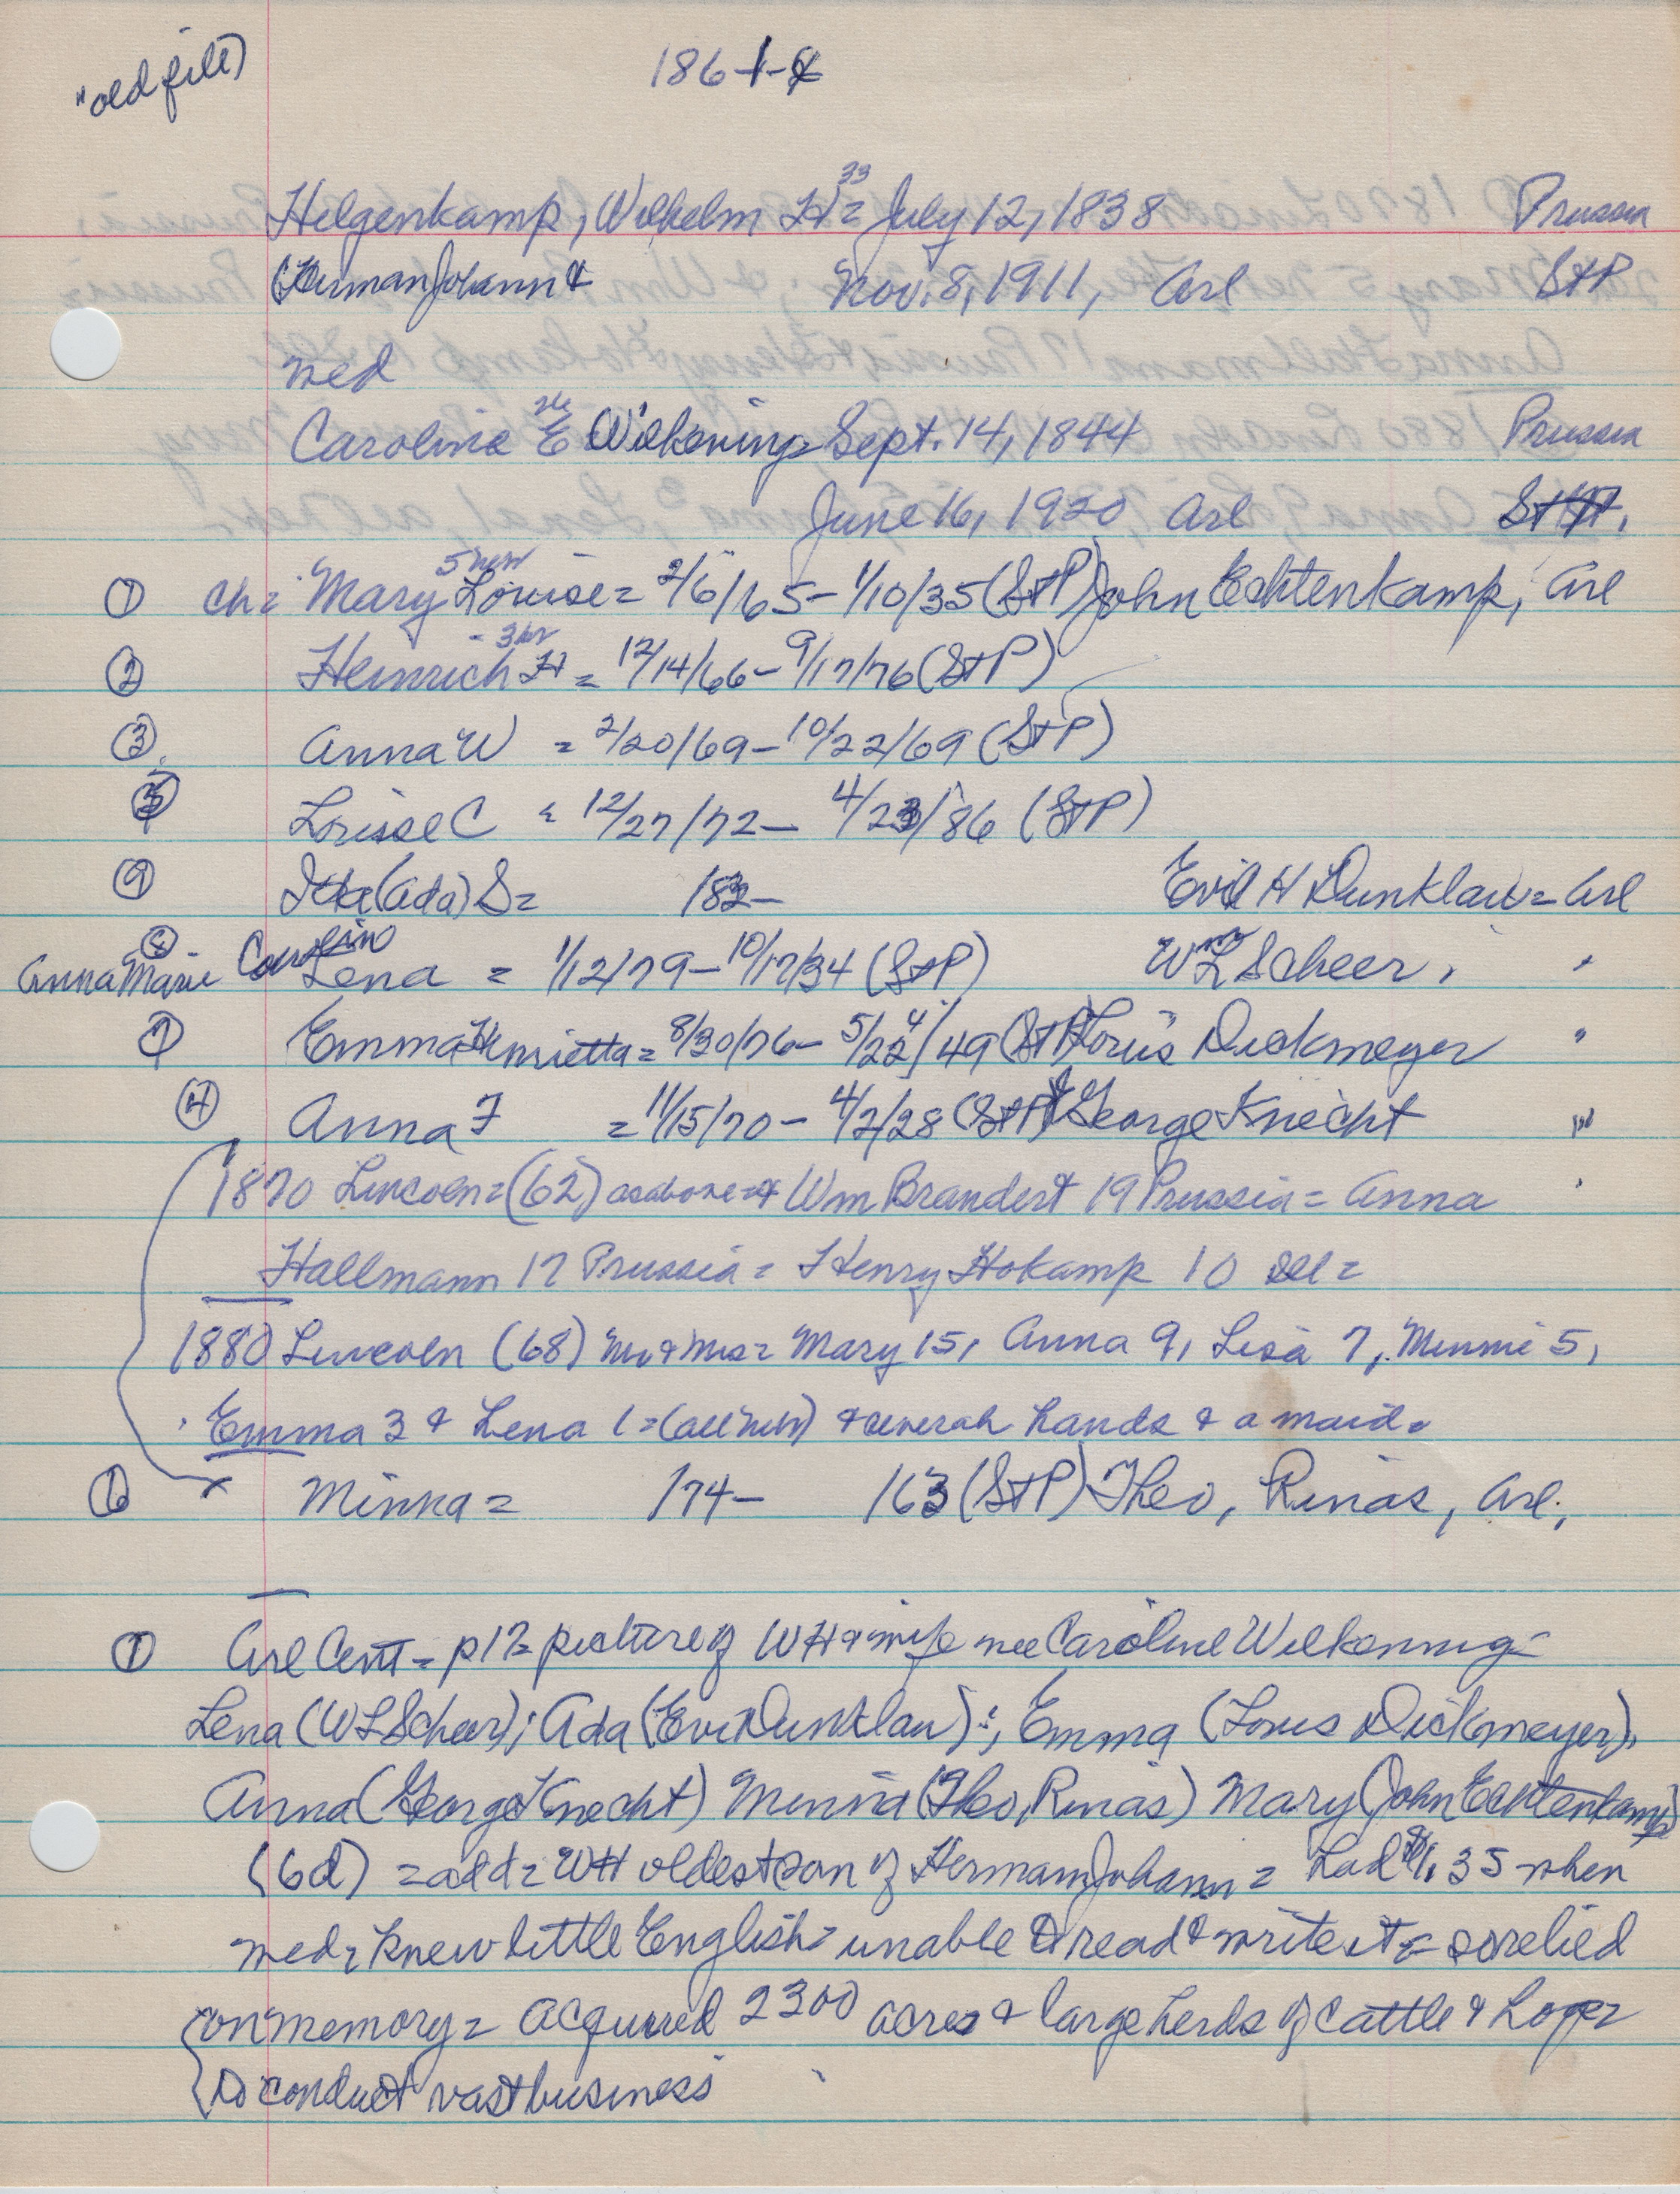 "old file)
186-1-
33
Helgenkamp, Wilhelm H = July 12, 1838 Prussia
(Herman Johann & Nov. 8, 1911, Arl StP
med
26
Caroline E Wilkening = Sept. 14, 1844 Prussia
June 16, 1920 Arl StP.
5 neb
① ch = Mary Louise = 2/6/65 - 1/10/35 (StP) John Echtenkamp, Arl
3 neb
② Heinrich H = 12/14/66 - 9/17/76 (StP)
③ Anna W = 2/20/69 - 10/22/69 (StP)
⑤ Louise C = 12/27/72 - 4/23/86 (StP)
⑨ Ida (Ada) S = 182 - H Dunklau = Arl
⑧
Anna Marie Lena = 1/12/79 - 10/17/34 (StP) W L Scheer, "
⑦ Emma Henrietta = 8/30/76 - 5/24/49 (StP) Louis Dickmeyer "
④ Anna F = 11/15/70 - 4/2/28 (StP) George Knecht "
1870 Lincoln = (62) as above = & Wm Brandert 19 Prussia = Anna
Hallmann 17 Prussia = Henry Hokamp 10 Ill =
1880 Lincoln (68) Mr & Mrs = Mary 15, Anna 9, Lisa 7, Minnie 5,
Emma 3 & Lena 1 = (all neb) & several hands & a maid =
⑥ x Minna = /74 - /63 (StP) Theo, Rinas, Arl,
① Arl Cent = p12 picture of WH & wife nee Caroline Wilkening =
Lena (W L Scheer); Ada (Evi Dunklau); Emma (Louis Dickmeyer),
Anna (George Knecht) Minna (Theo, Rinas) Mary (John Echtenkamp)
(6d) = add = WH oldest son of Herman Johann = had $1.35 when
med = knew little English = unable to read & write it = so relied
on memory = acquired 2300 acres & large herds of cattle & hogs =
to conduct vast business